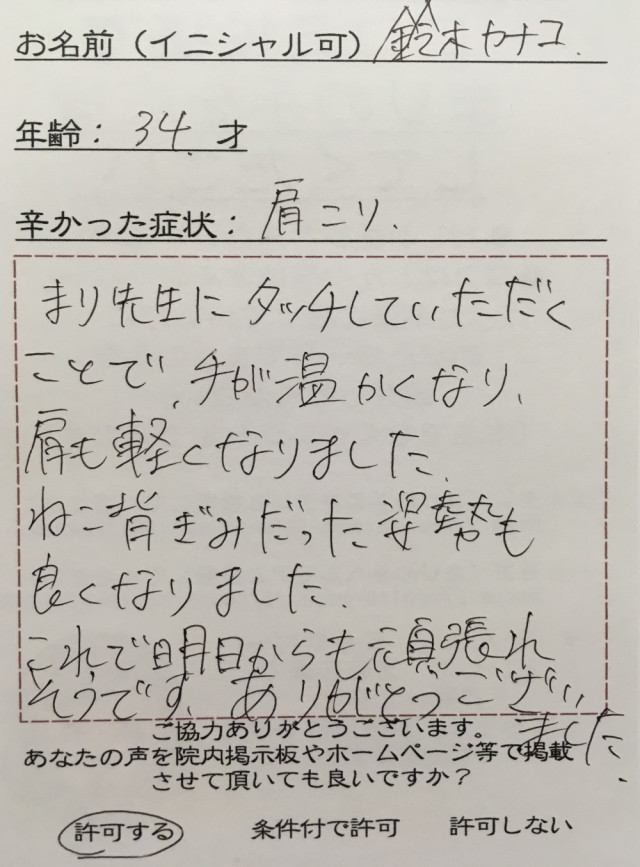 お名前（イニシャル可）鈴木カナコ.
年齢：34.才
辛かった症状：肩こり.
まり先生にタッチしていただく
ことで、手が温かくなり、
肩も軽くなりました.
ねこ背ぎみだった姿勢も
良くなりました.
これで明日からも頑張れ
そうです。ありがとうござい
ました.
ご協力ありがとうございます。
あなたの声を院内掲示板やホームページ等で掲載
させて頂いても良いですか？
許可する 条件付で許可 許可しない